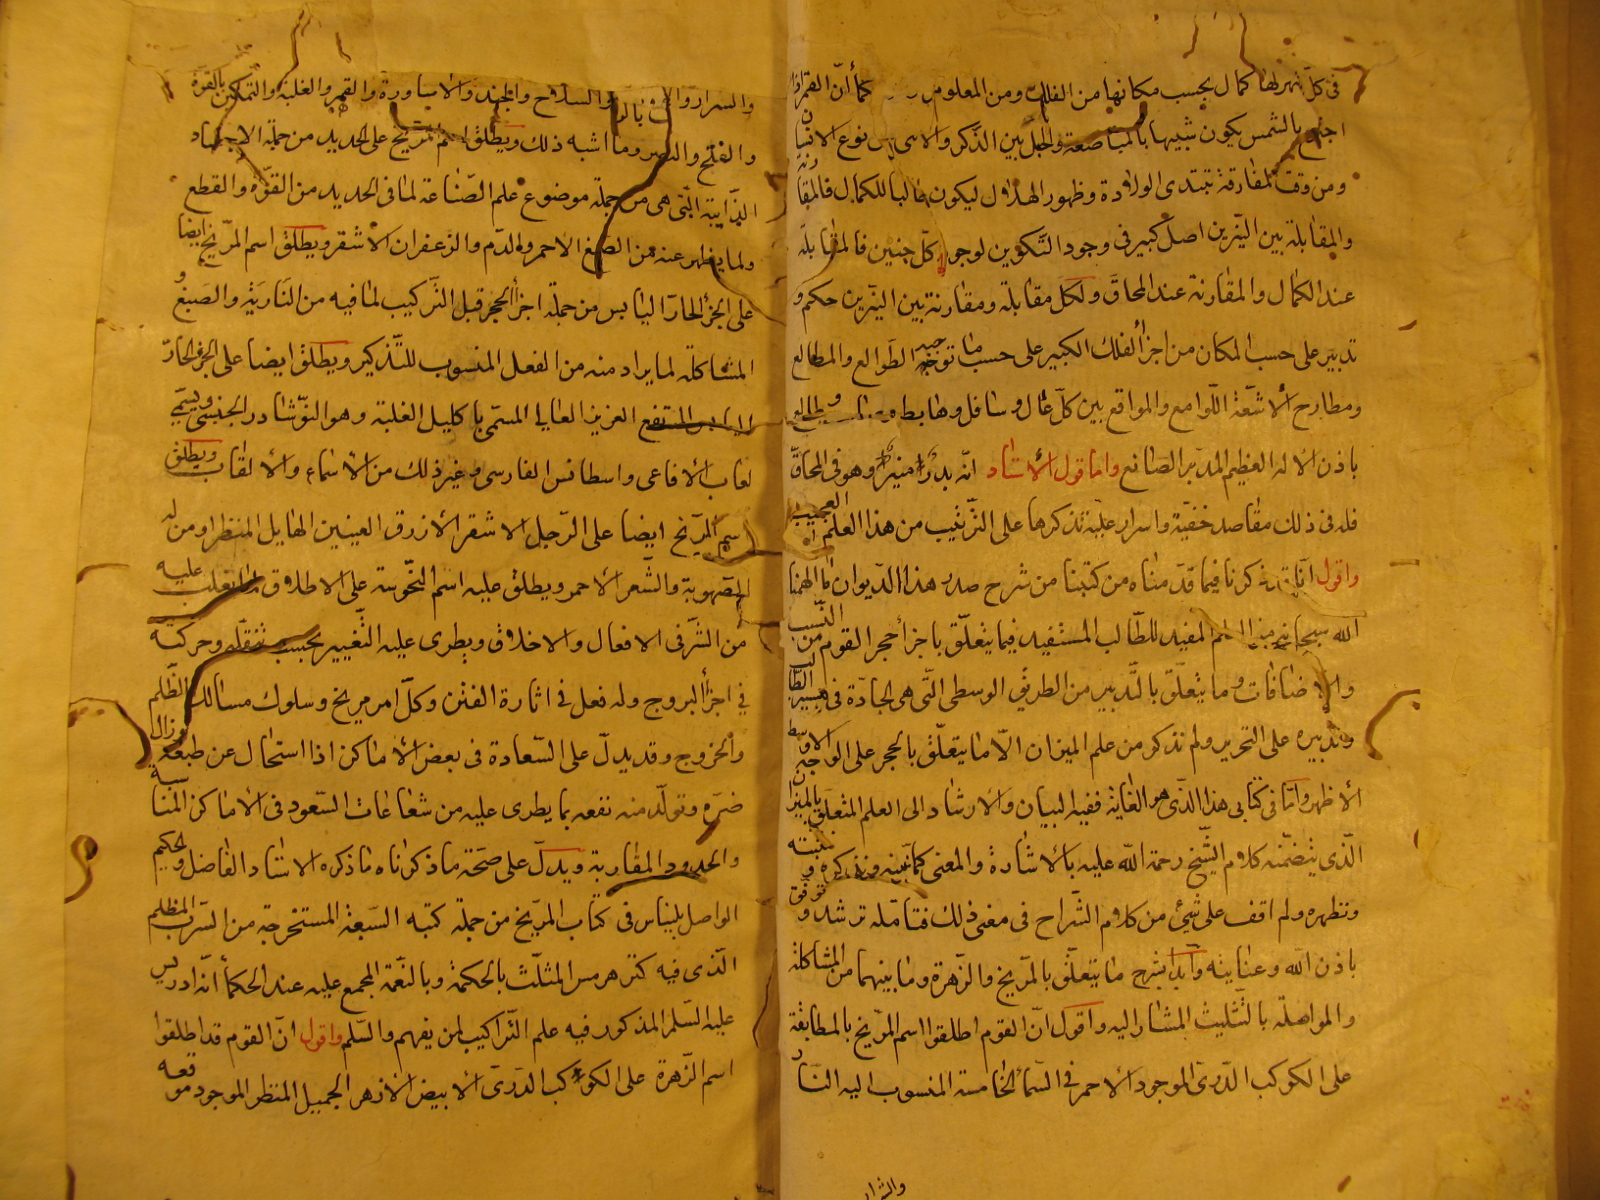 في كلّ شهر لها كمال بحسب مكانها من الفلك ومن المعلوم كما أنّ القمر اذا
اجتمع بالشمس يكون شبيها بالمباضعة والحبل بين الذّكر والانثى نوع الانسان
ومن وقت المفارقة تبتدى الولادة وظهور الهلال ليكون طالبا للكمال فالمقارنة
والمقابلة بين النيّرين اصل كبير في وجود التّكوين لوجود كلّ جنين فالمقابلة
عند الكمال والمقارنة عند المحاق ولكل مقابلة ومقارنة بين النيّرين حكم و
تدبير على حسب المكان من اجزأ الفلك الكبير على حسب ما توجبه الطوالع والمطالع
ومطارح الأشعّة اللّوامع والمواقع بين كلّ عال وسافل وهابط وطالع
باذن الاله العظيم المدبّر الصانع واما قول الأستاد انّه بدرًا منيرًا وهو في المحاق
فله في ذلك مقاصد خفيّة واسرار عليّة نذكرها على الترتيب من هذا العلم العجيب
واقول انّا قد ذكرنا فيما قدّمناه من كتبنا من شرح صدر هذا الدّيوان ما الهمنا
الله سبحانه من العلم المفيد للطّالب المستفيد فيما يتعلّق باجزأ حجر القوم من النّسب
والاضافات وما يتعلّق بالتّدبير من الطريق الوسطى التّى هى الجادّة في تيسير الطّالب
وتدبيره على التحرير ولم نذكر من علم الميزان الّا ما يتعلّق بالحجر على الوجه الاوسط
الأظهر وامّا في كتابى هذا الّذى هو الغاية ففيه البيان والارشاد الى العلم المتعلّق بالميزان
الّذى يتضمّنه كلام الشّيخ رحمة اللّه عليه بالاشارة والمعنى كما نبيّنه ونذكره و نثبته
ونظهره ولم اقف على شئ من كلام الشّراح في معنى ذلك فتامّله ترشد و توفّق
باذن اللّه وعنايته وابدأ بشرح ما يتعلّق بالمرّيخ والزّهرة وما بينهما من المشاكلة
والمواصلة بالتثليث المشار اليه واقول انّ القوم اطلقوا اسم المرّيخ بالمطابقة
على الكوكب الدّرىّ الموجود الاحمر في السّمأ الخامسة المنسوب اليه النّار
والشرار
والشرار والسلاح والجند والاساورة والقهر والغلبة والتمكين بالقوة
والفتح والنصر وما اشبه ذلك ويطلق اسم المرّيخ على الحديد من جملة الاجساد
الذّايبة التّى هى من جملة موضوع علم الصّناعة لما في الحديد من القوّة والقطع
ولما يظهر عنه من الصبغ الاحمر والدّم والزعفران الاشقر ويطلق اسم المرّيخ ايضا
على الجزأ الحارّ اليابس من جملة اجزأ الحجر قبل التّركيب لما فيه من النّاريّة والصبغ و
المشاكلة لما يراد منه من الفعل المنسوب للتّذكير ويطلق ايضا على الجزو الحارّ
اليابس المرتفع العزيز الغالي المسمّى باكليل الغلبة وهو النّوشادر الجنسى ويسمّى
لعاب الأفاعى واسطانس الفارسى وغير ذلك من الأسماء والالقاب ويطلق
اسم المرّيخ ايضا على الرّجل الاشقر الأزرق العينين الهايل المنظر ومن له
الصّهوبة والشّعر الأحمر ويطلق عليه اسم النّحوسة على الاطلاق لما يغلب عليه
من الشّر في الافعال والاخلاق ويطرى عليه التّغيير بحسب تنقّله وحركته
في اجزأ البروج وله فعل في اثارة الفتن وكلّ امر مريخ وسلوك مسالك الظّلم
والخروج وقد يدلّ على السّعادة في بعض الأماكن اذا استحال عن طبعه وزال
ضرّه وتولّد منه نفعه بما يطرى عليه من شعاعات السّعود في الأماكن المناسبة
والحدود المقاربة ويدلّ على صحّة ما ذكرناه ما ذكره الاستاد الفاضل والحكيم
الواصل بليناس في كتاب المريّخ من جملة كتبه السّبعة المستخرجة من السّرب المظلم
الّذى فيه كنز هرمس المثلّث بالحكمة وبالنّعمة المجمع عليه عند الحكمأ انّه ادريس
عليه السّلم المذكور فيه علم التّراكيب لمن يفهم والسّلم واقول انّ القوم قد اطلقوا
اسم الزّهرة على الكوكب الدّرىّ الأبيض الأزهر الجميل المنظر الموجود موقعه